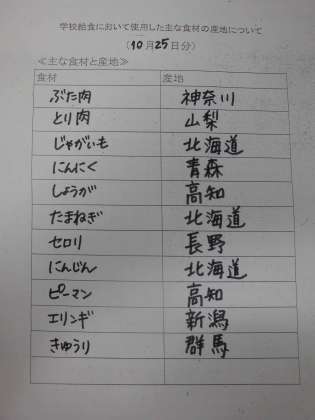 学校給食において使用した主な食材の産地について
(10月25日分)
≪主な食材と産地≫
食材 産地
ぶた肉 神奈川
とり肉 山梨
じゃがいも 北海道
にんにく 青森
しょうが 高知
たまねぎ 北海道
セロリ 長野
にんじん 北海道
ピーマン 高知
エリンギ 新潟
きゅうり 群馬